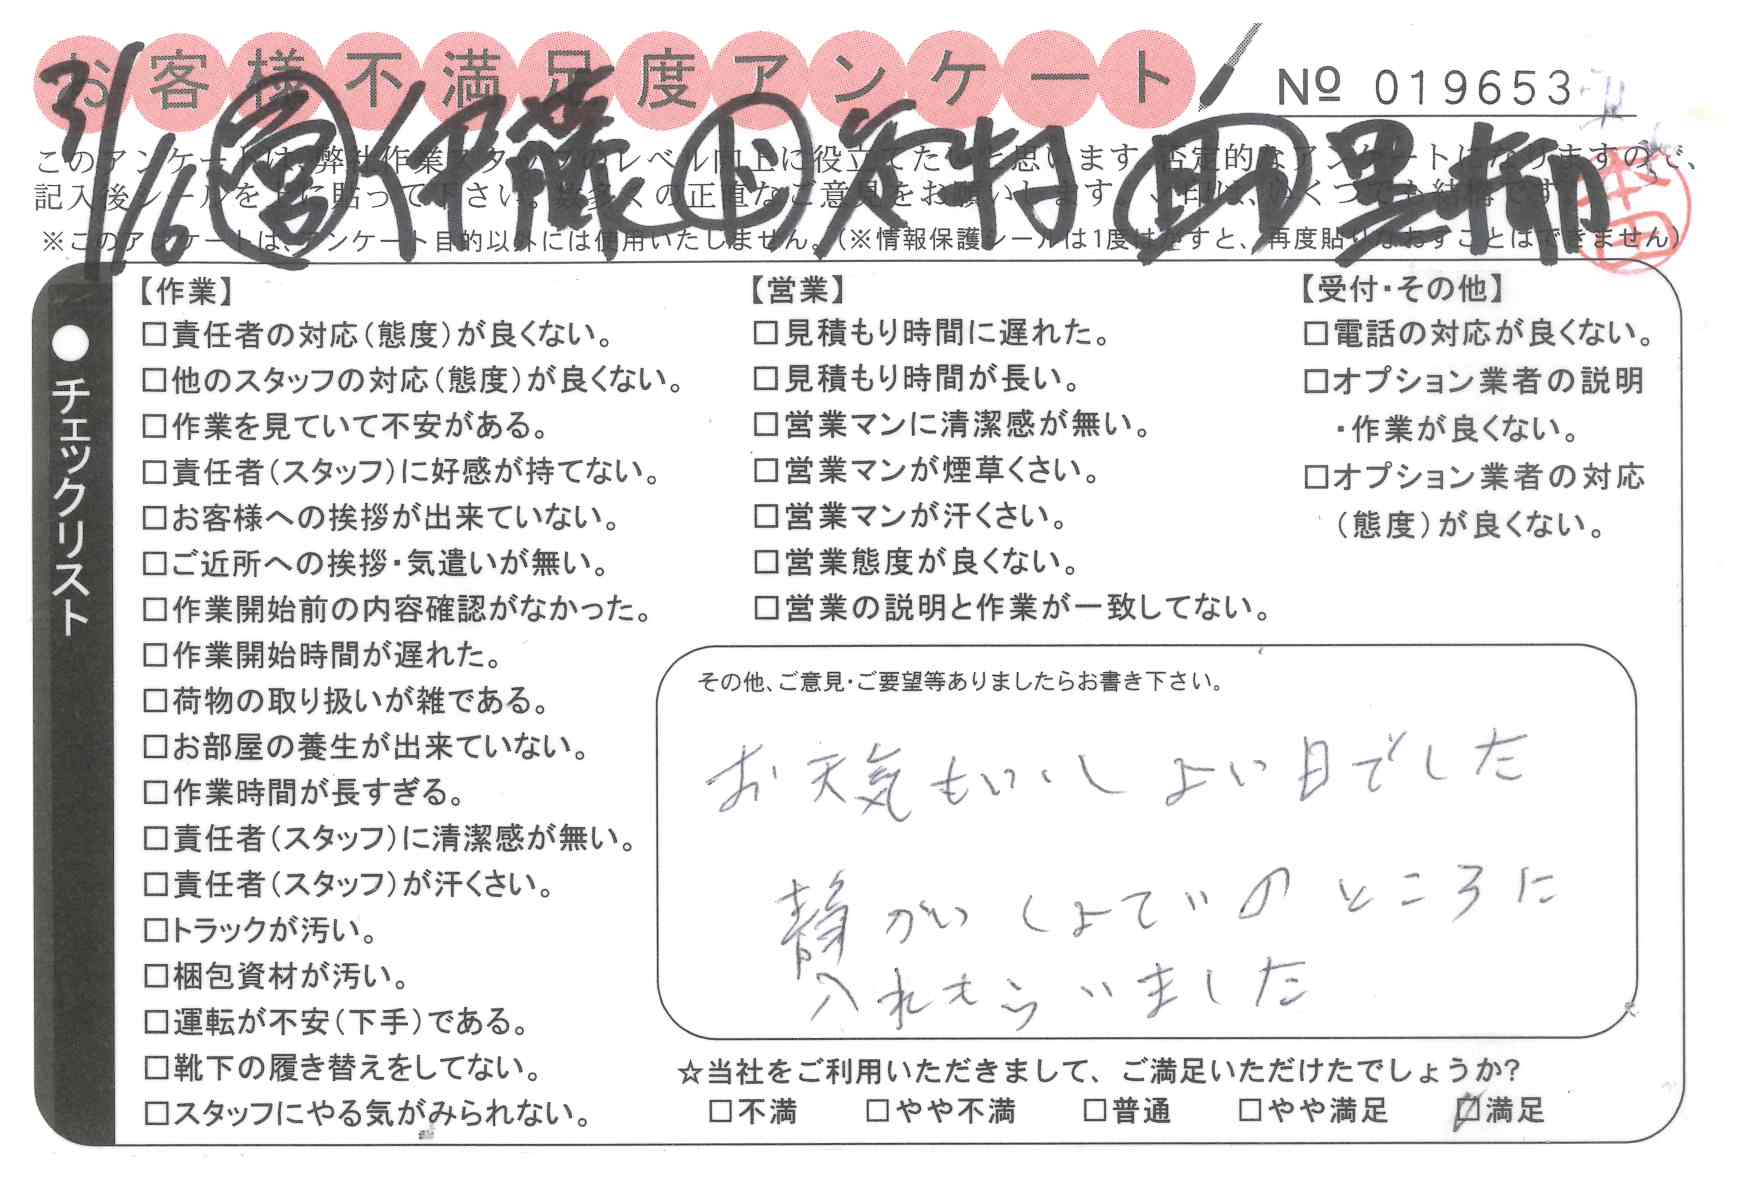 お客様不満足度アンケート
№ 019653
3/16 営 伊藤 ト 定村 助 黒柳
このアンケートは、弊社作業スタッフのレベル向上に役立てたいと思います。否定的なアンケートになりますので、
記入後シールを上に貼って下さい。数多くの正直なご意見をお願いします。✓印は、いくつでも結構です。
※このアンケートは、アンケート目的以外には使用いたしません。(※情報保護シールは1度はがすと、再度貼りなおすことはできません)
●チェックリスト
【作業】
□責任者の対応(態度)が良くない。
□他のスタッフの対応(態度)が良くない。
□作業を見ていて不安がある。
□責任者(スタッフ)に好感が持てない。
□お客様への挨拶が出来ていない。
□ご近所への挨拶・気遣いが無い。
□作業開始前の内容確認がなかった。
□作業開始時間が遅れた。
□荷物の取り扱いが雑である。
□お部屋の養生が出来ていない。
□作業時間が長すぎる。
□責任者(スタッフ)に清潔感が無い。
□責任者(スタッフ)が汗くさい。
□トラックが汚い。
□梱包資材が汚い。
□運転が不安(下手)である。
□靴下の履き替えをしてない。
□スタッフにやる気がみられない。
【営業】
□見積もり時間に遅れた。
□見積もり時間が長い。
□営業マンに清潔感が無い。
□営業マンが煙草くさい。
□営業マンが汗くさい。
□営業態度が良くない。
□営業の説明と作業が一致してない。
【受付・その他】
□電話の対応が良くない。
□オプション業者の説明
・作業が良くない。
□オプション業者の対応
(態度)が良くない。
その他、ご意見・ご要望等ありましたらお書き下さい。
お天気もいいし よい日でした
静かい しょていの ところに
入れもらいました
☆当社をご利用いただきまして、ご満足いただけたでしょうか?
□不満 □やや不満 □普通 □やや満足 ☑満足